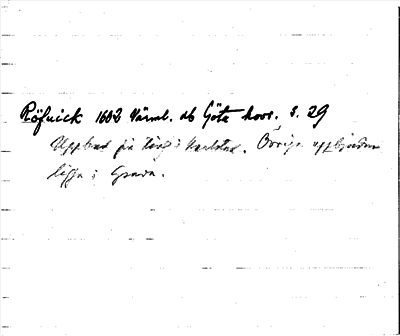 Röfvick 1602 Värml. ob Göta hovr. s. 29
Uppbud på ting i Karlstad. Övriga uppbjudna
ligga i Grava.